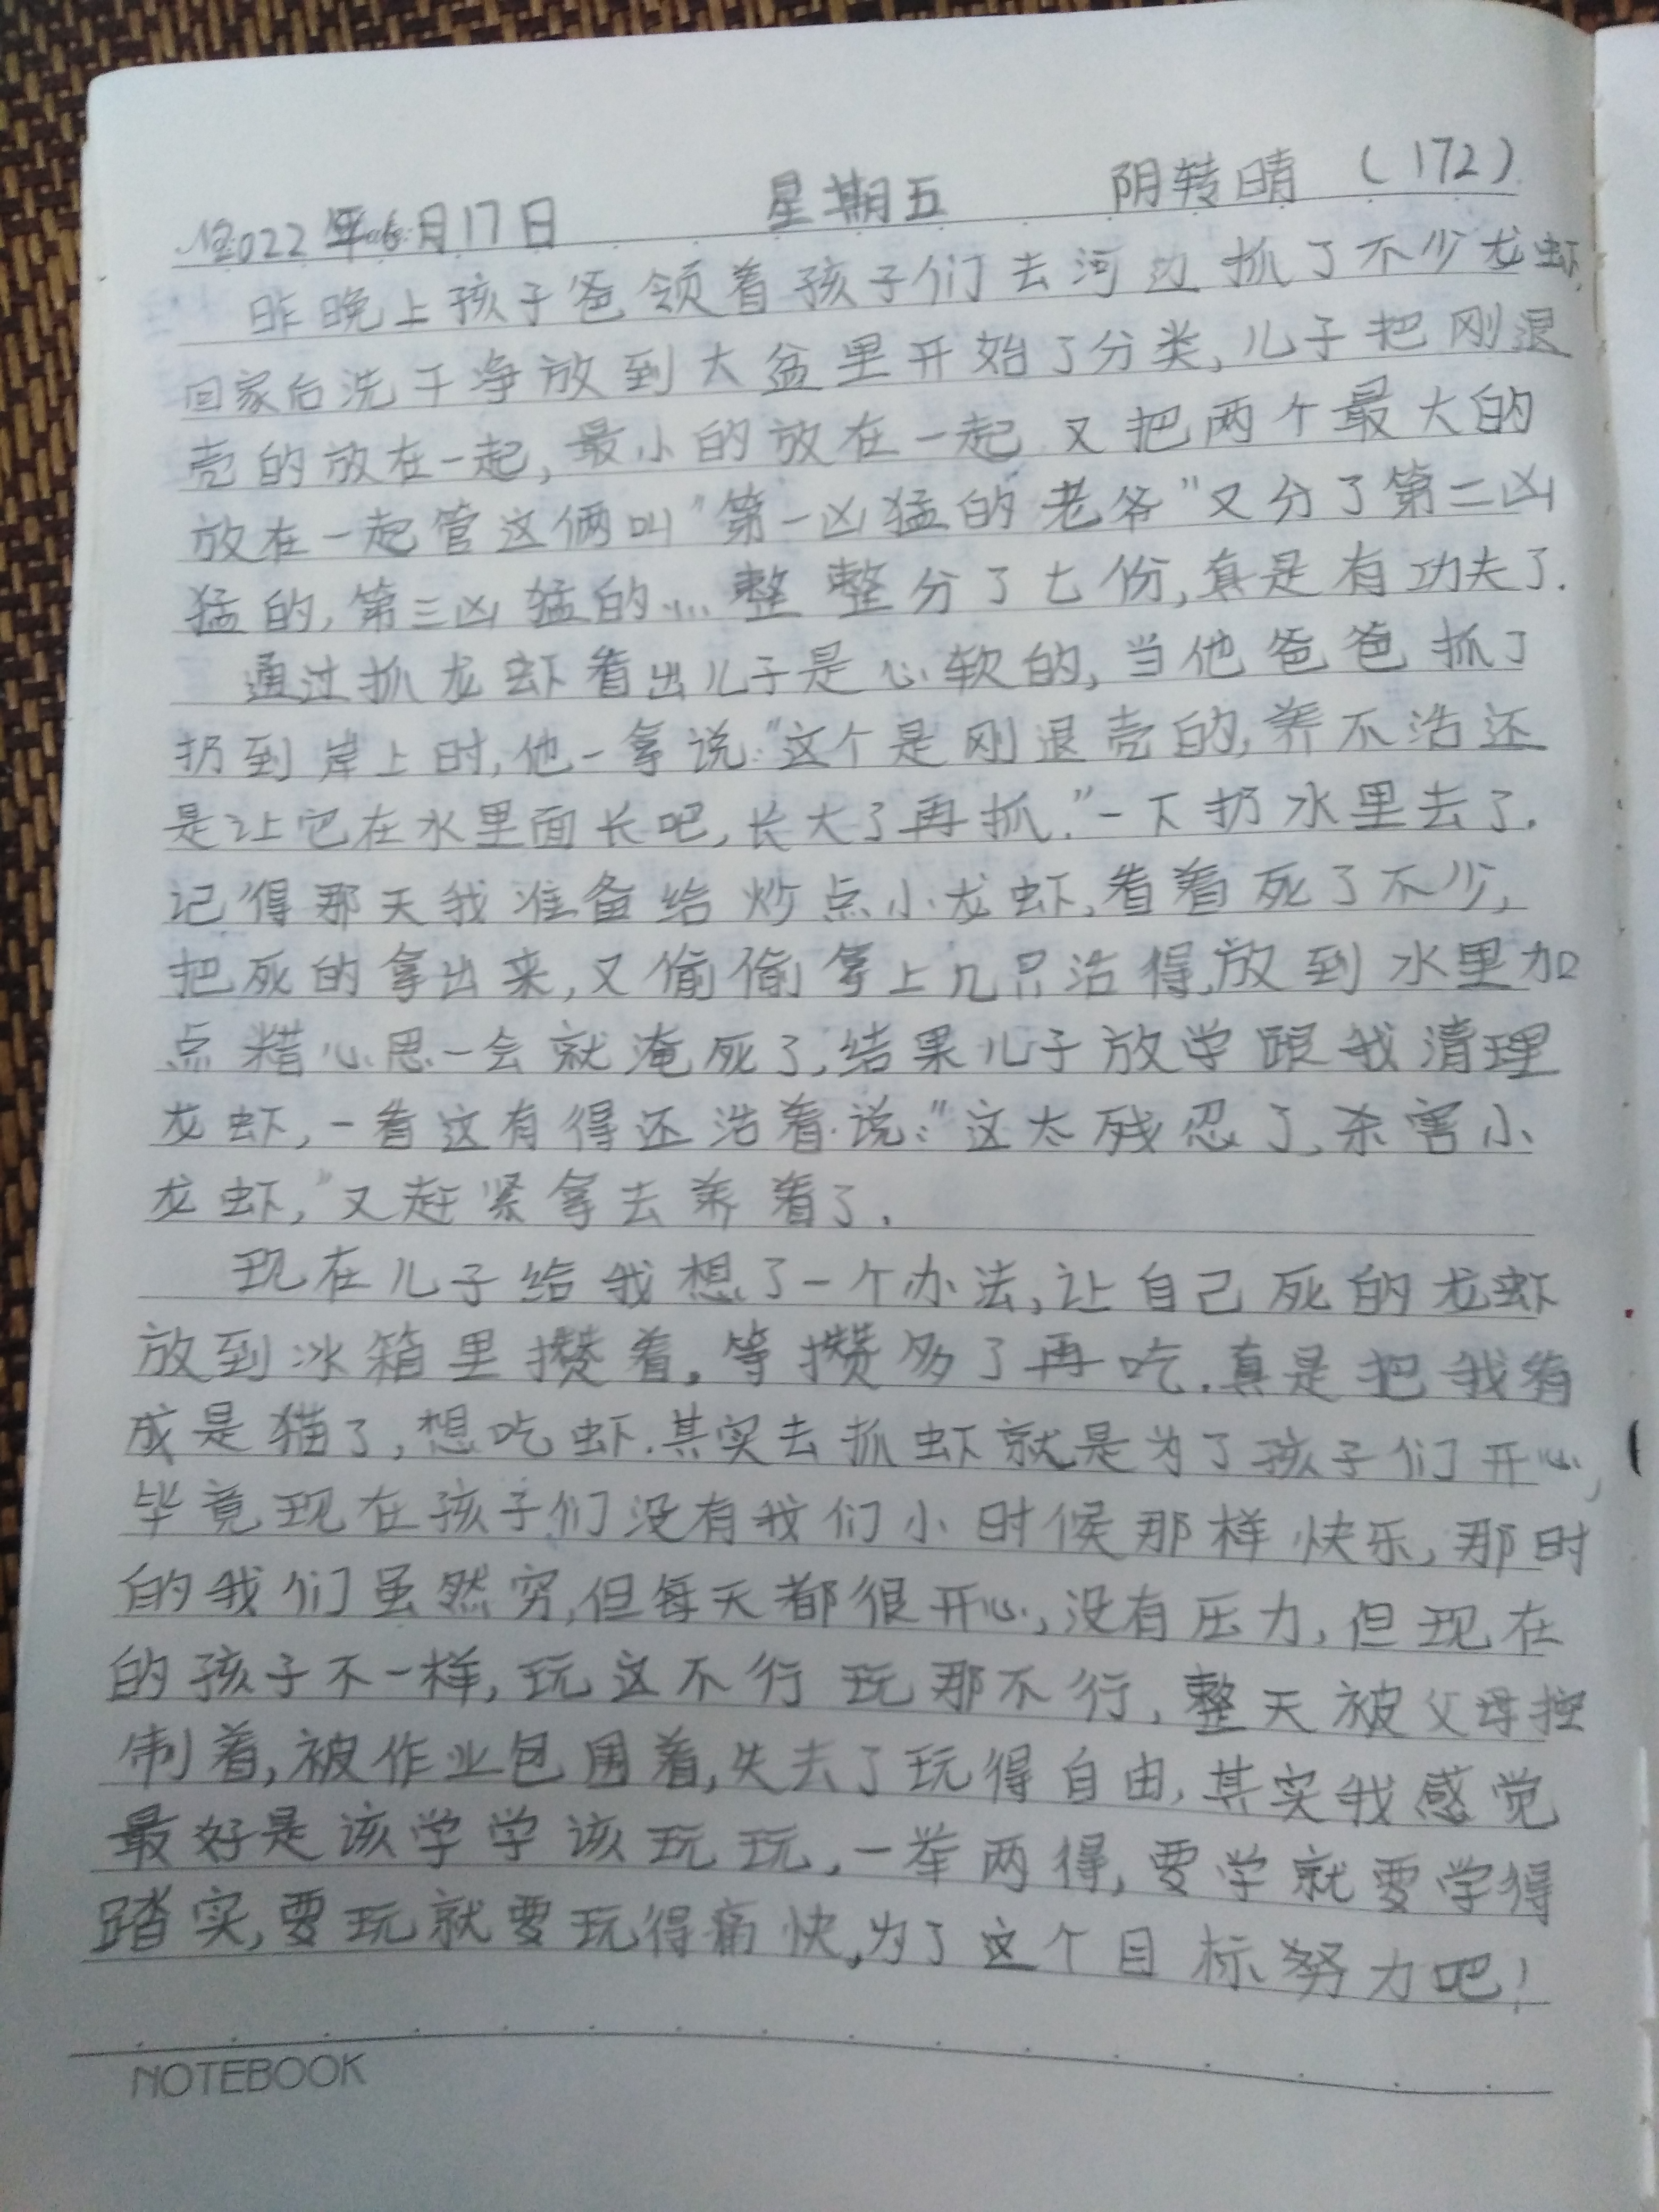 2022年6月17日 星期五 阴转晴 (172)
昨晚上孩子爸领着孩子们去河边抓了不少龙虾,
回家后洗干净放到大盆里开始了分类,儿子把刚退
壳的放在一起,最小的放在一起又把两个最大的
放在一起管这俩叫"第一凶猛的老爷"又分了第二凶
猛的,第三凶猛的...整整分了七份,真是有功夫了.
通过抓龙虾看出儿子是心软的,当他爸爸抓了
扔到岸上时,他一拿说:"这个是刚退壳的,养不活还
是让它在水里面长吧,长大了再抓."一下扔水里去了.
记得那天我准备给炒点小龙虾,看着死了不少,
把死的拿出来,又偷偷拿上几只活得,放到水里加
点精心思一会就淹死了,结果儿子放学跟我清理
龙虾,一看这有得还活着.说:"这太残忍了,杀害小
龙虾,"又赶紧拿去养着了.
现在儿子给我想了一个办法,让自己死的龙虾
放到冰箱里攒着。等攒多了再吃.真是把我看
成是猫了,想吃虾.其实去抓虾就是为了孩子们开心,
毕竟现在孩子们没有我们小时候那样快乐,那时
的我们虽然穷,但每天都很开心,没有压力,但现在
的孩子不一样,玩这不行玩那不行,整天被父母控
制着,被作业包围着,失去了玩得自由,其实我感觉
最好是该学学该玩玩,一举两得,要学就要学得
踏实,要玩就要玩得痛快,为了这个目标努力吧!
NOTEBOOK